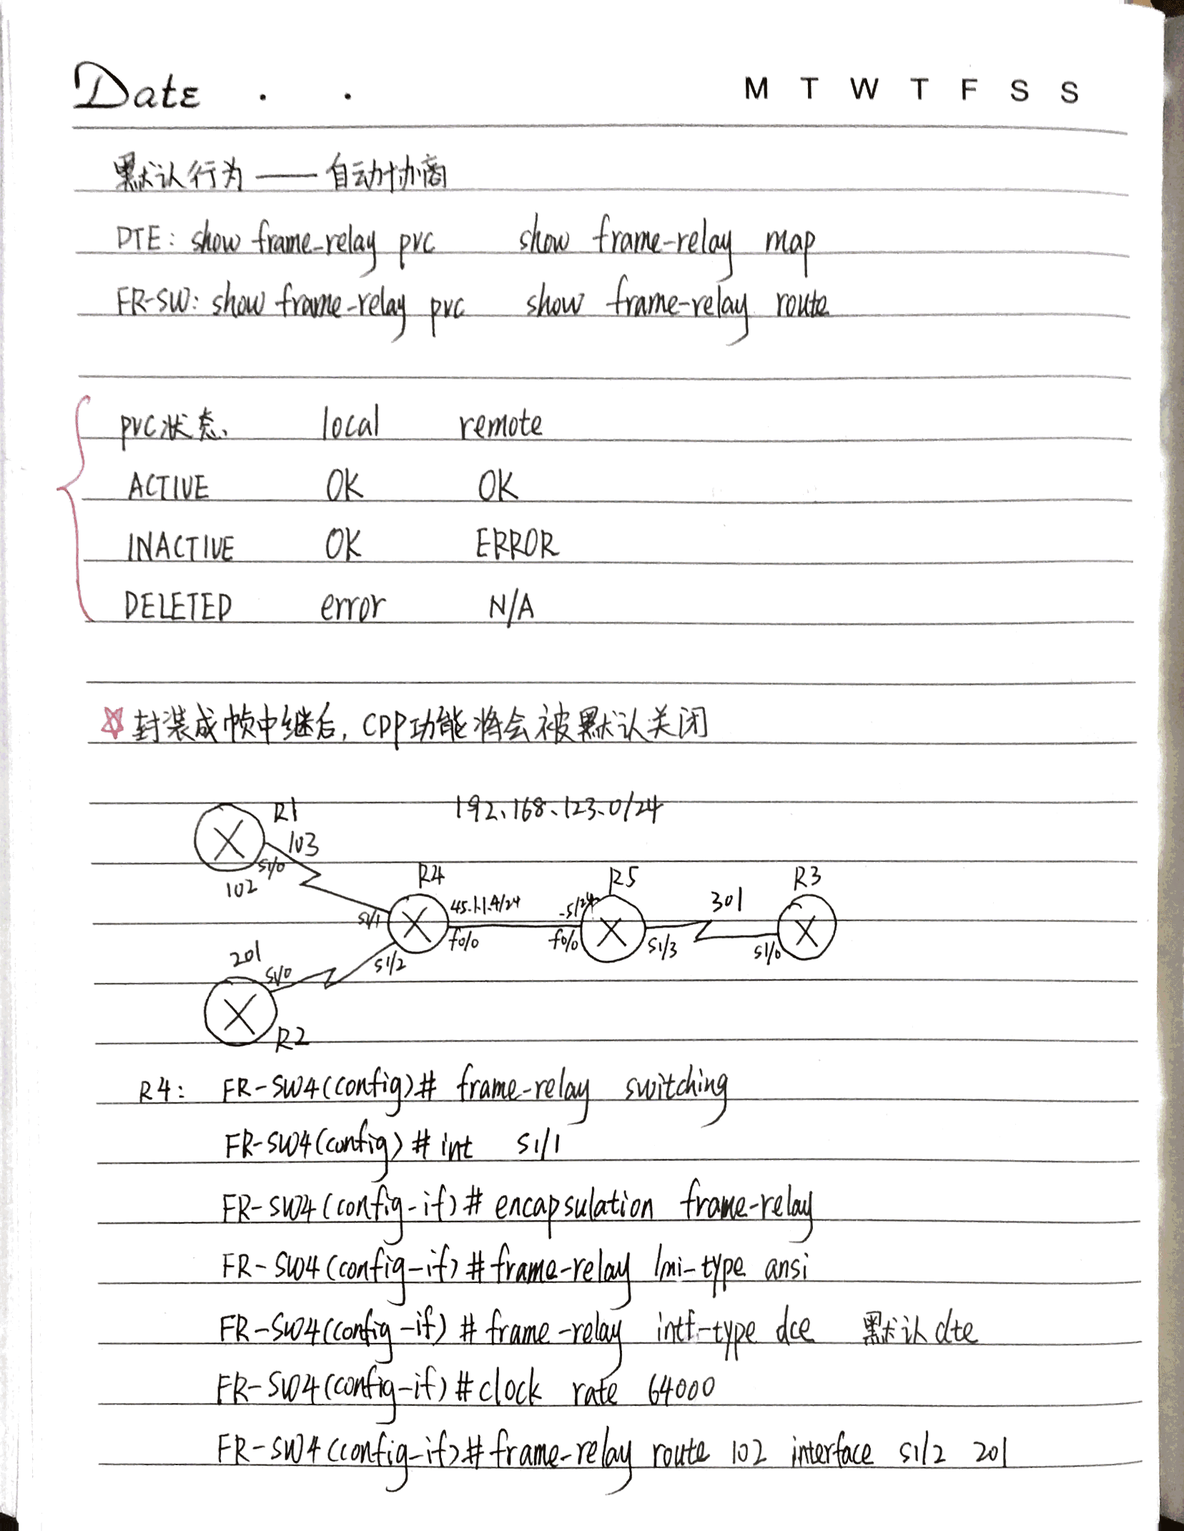 Date . .
M T W T F S S
默认行为 —— 自动协商
DTE: show frame-relay pvc show frame-relay map
FR-SW: show frame-relay pvc show frame-relay route
pvc状态 local remote
ACTIVE OK OK
INACTIVE OK ERROR
DELETED error N/A
☆封装成帧中继后, CDP功能将会被默认关闭
R1 192.168.123.0/24
103
s1/0
102
R4 R5 R3
45.1.1.4/24 .5/24 301
s1/1
f0/0 f0/0 s1/3 s1/0
201 s1/0 s1/2
R2
R4: FR-SW4(config)# frame-relay switching
FR-SW4(config)# int s1/1
FR-SW4(config-if)# encapsulation frame-relay
FR-SW4(config-if)# frame-relay lmi-type ansi
FR-SW4(config-if)# frame-relay intf-type dce 默认dte
FR-SW4(config-if)# clock rate 64000
FR-SW4(config-if)# frame-relay route 102 interface s1/2 201